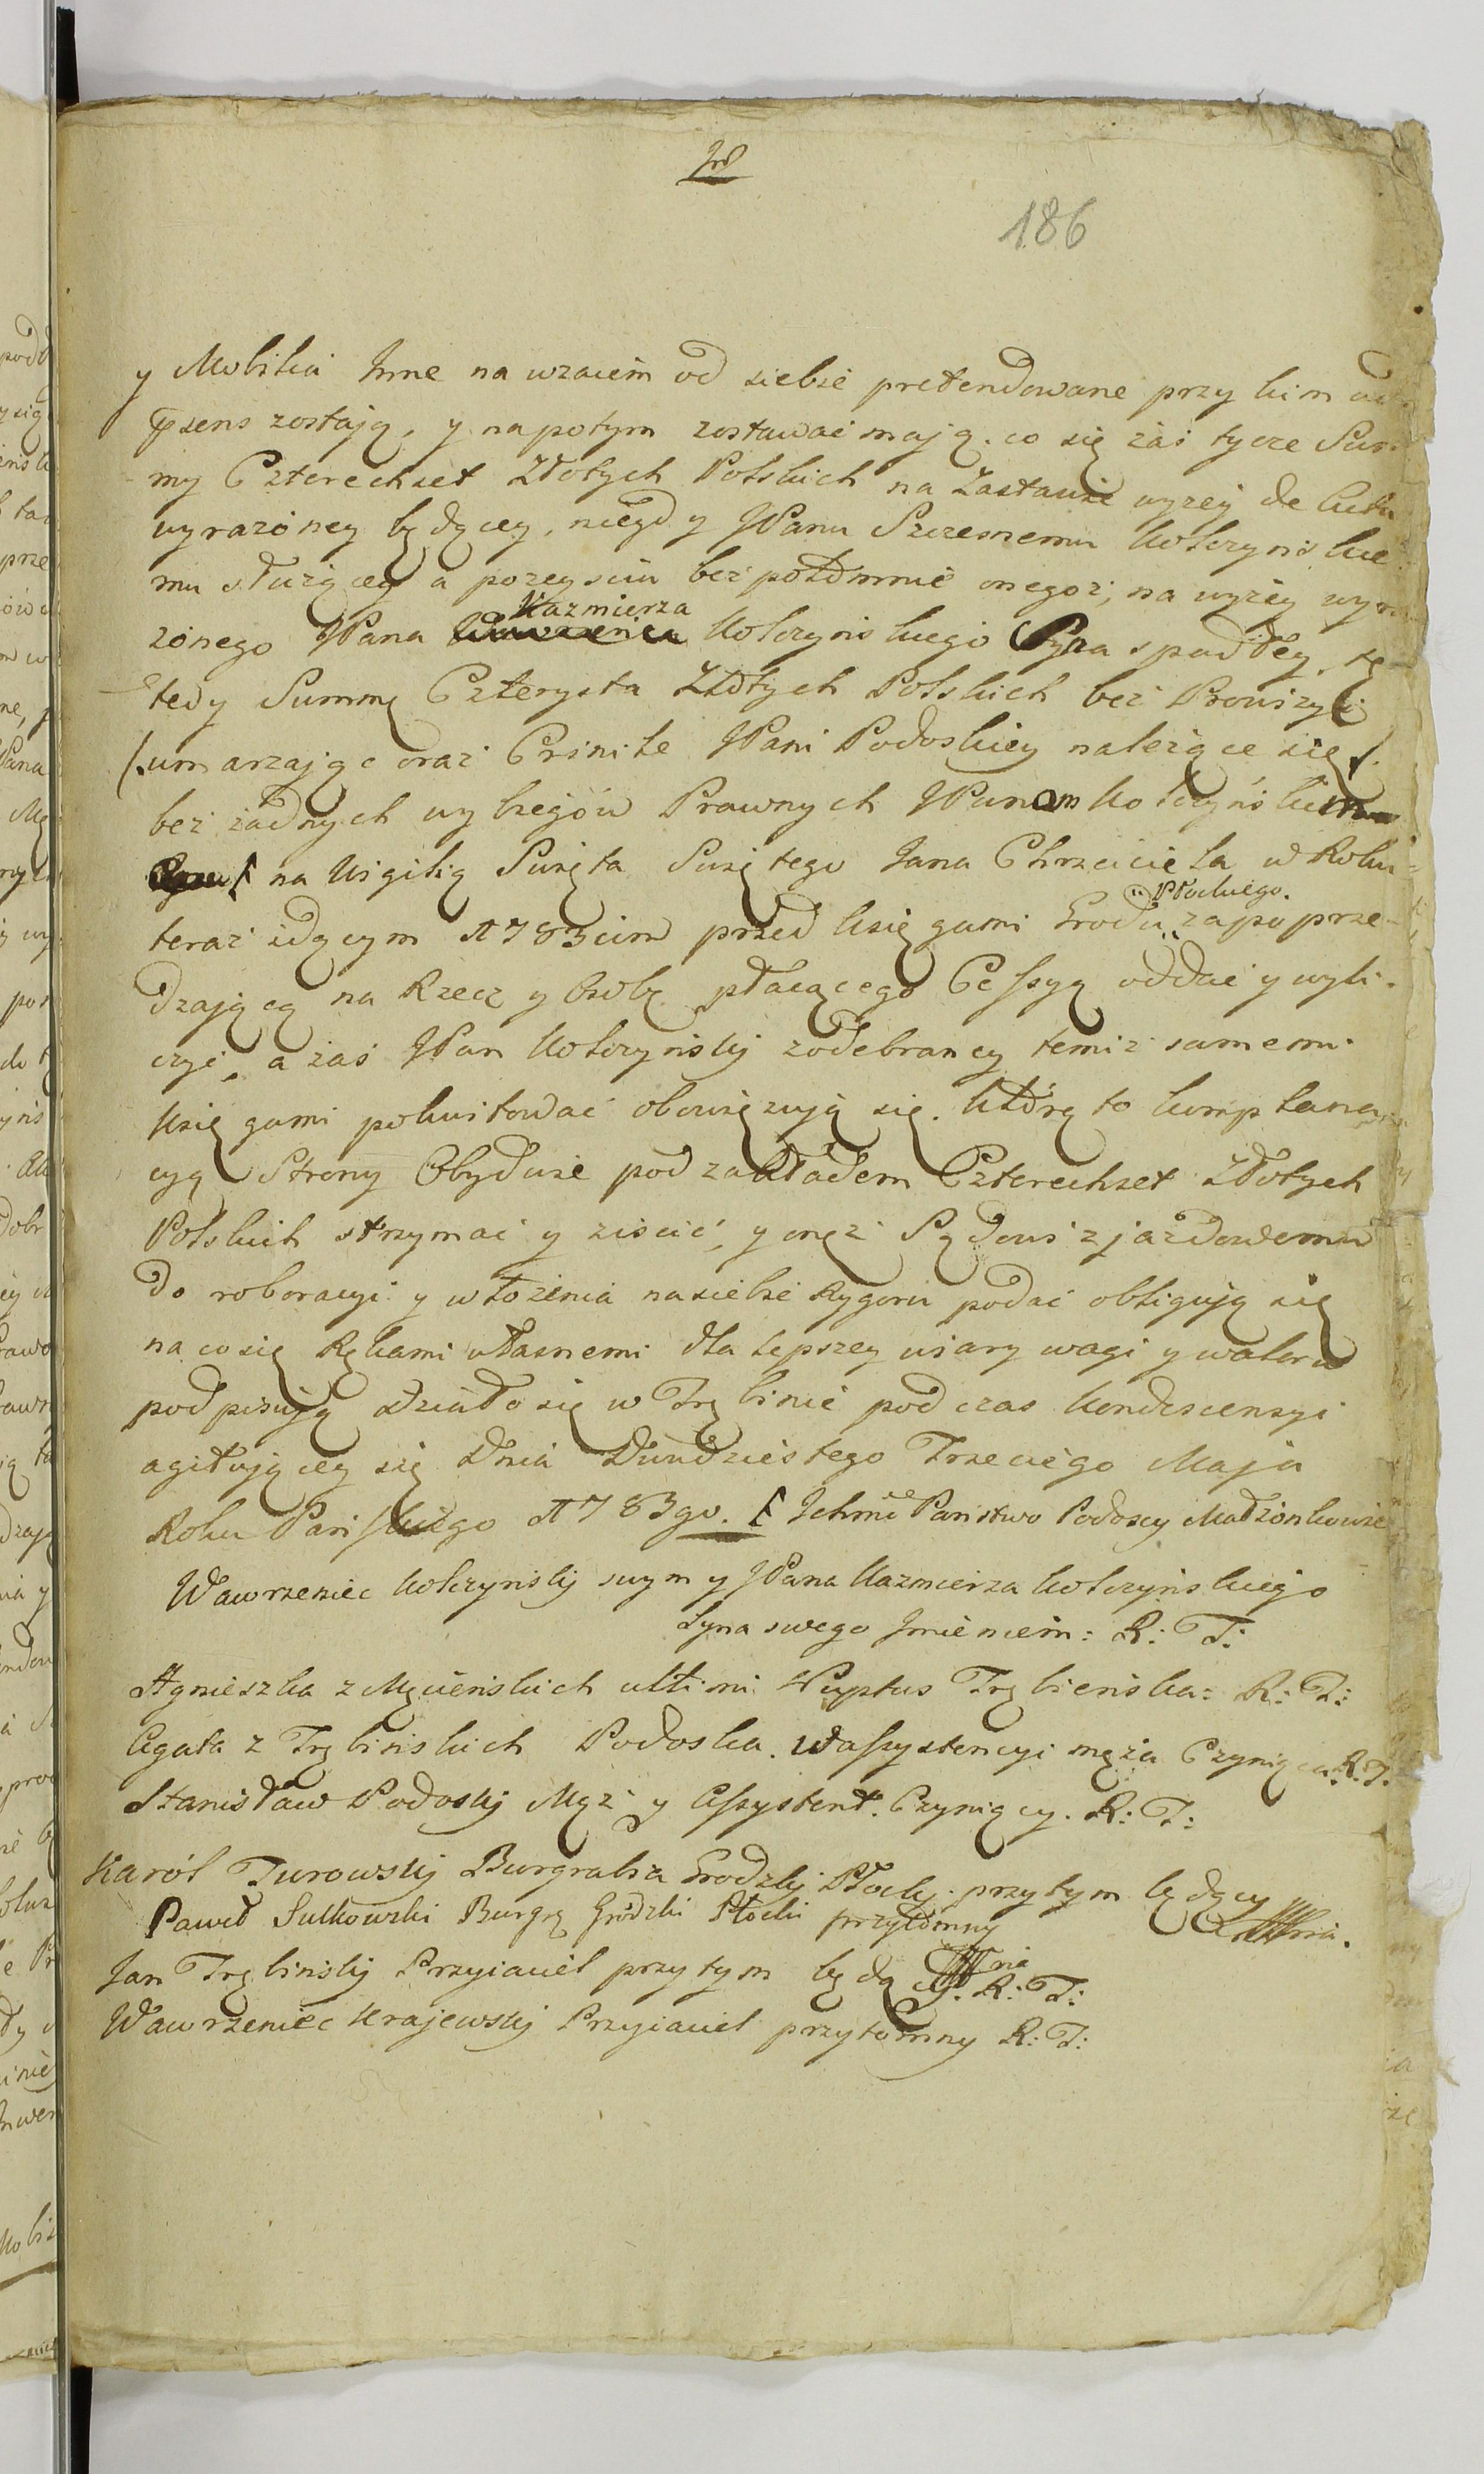 186
y Mobilia Inne na wzaiem od siebie pretendowane przy kim ad
psens zostają, y napotym zostawać mają. co się zaś tycze Sum
my Czterechset Złotych Polskich na Zastawie wyzey de Actu
wyrazoney będącey, niegdy JPanu Szczesnemu Kolczynskie
mu słuzącey a pozeysciu bezpotomnie onegoz, na wyzey wyra
Kazmierza
zonego JPana Wawrzenca Kolczynskiego Syna spadłey, tę
tedy Summę Czterysta Złotych Polskich bez Prowizyi
umarzając oraz Crinile JPani Podoskiey nalezące się
bez zadnych wybiegów Prawnych JPanom Kolczyńskim
na Wigilią Swięta Swiętego Jana Chrzciciela w Roku
Płockiego.
teraz idącym 1783cim przed Księgami Grodu zapoprze-
dzającą na Rzecz y Osobę płacącego Cessyą oddać y wyli-
czyć, a zaś JPan Kolczynskij zodebraney temiz samemi
Księgami pokwitować obowięzują się. Którę to komplana
cyą Strony Obydwie pod zakładem Czterechset Złotych
Polskich strzymać y ziscić, y onęz Sądowi zjazdowemu
do roboracyi y włozenia nasiebie Rygoru podać obligują się
nacosię Rękami własnemi dla lepszey wiary wagi y waloru
podpisują Działo się w Trębinie podczas Kondescensyi
agitującey się Dnia Dwudziestego Trzeciego Maja
Roku Pańskiego 1783go. Ichmć Państwo Podoscy Małzonkowie
Wawrzeniec Kolczynskij swym y JPana Kazmierza Kolczyńskiego
Syna swego Imieniem: R: T:
Agnieszka z Męcienskich ultimi Nuptus Trębieńska: R: T:
Agata z Trębinskich Podoska. w assystencyi męża Czyniąca. R. T.
Stanisław Podoskij Mąz y Assystent. Czyniący. R: T:
Karól Turowskij Burgrabia Grodzkij Płockij przytym będący
Paweł Sutkowski Burgrą Grodzki Płocki przytomny
Jan Trębinskij Przyiaciel przytym będący. R: T:
Wawrzeniec Krajewskij Przyiaciel przytomny R: T: